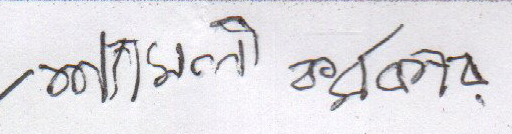 শ্যামলী কর্মকার